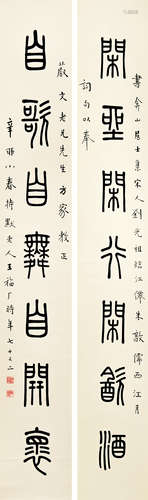 集宋人劉光祖臨江僊朱敦儒西江月
閑坐閑行閑飲酒
詞句以奉
文老兄先生方家教正
自歌自舞自開懷
辛卯小春持默老人王福厂時年七十又二